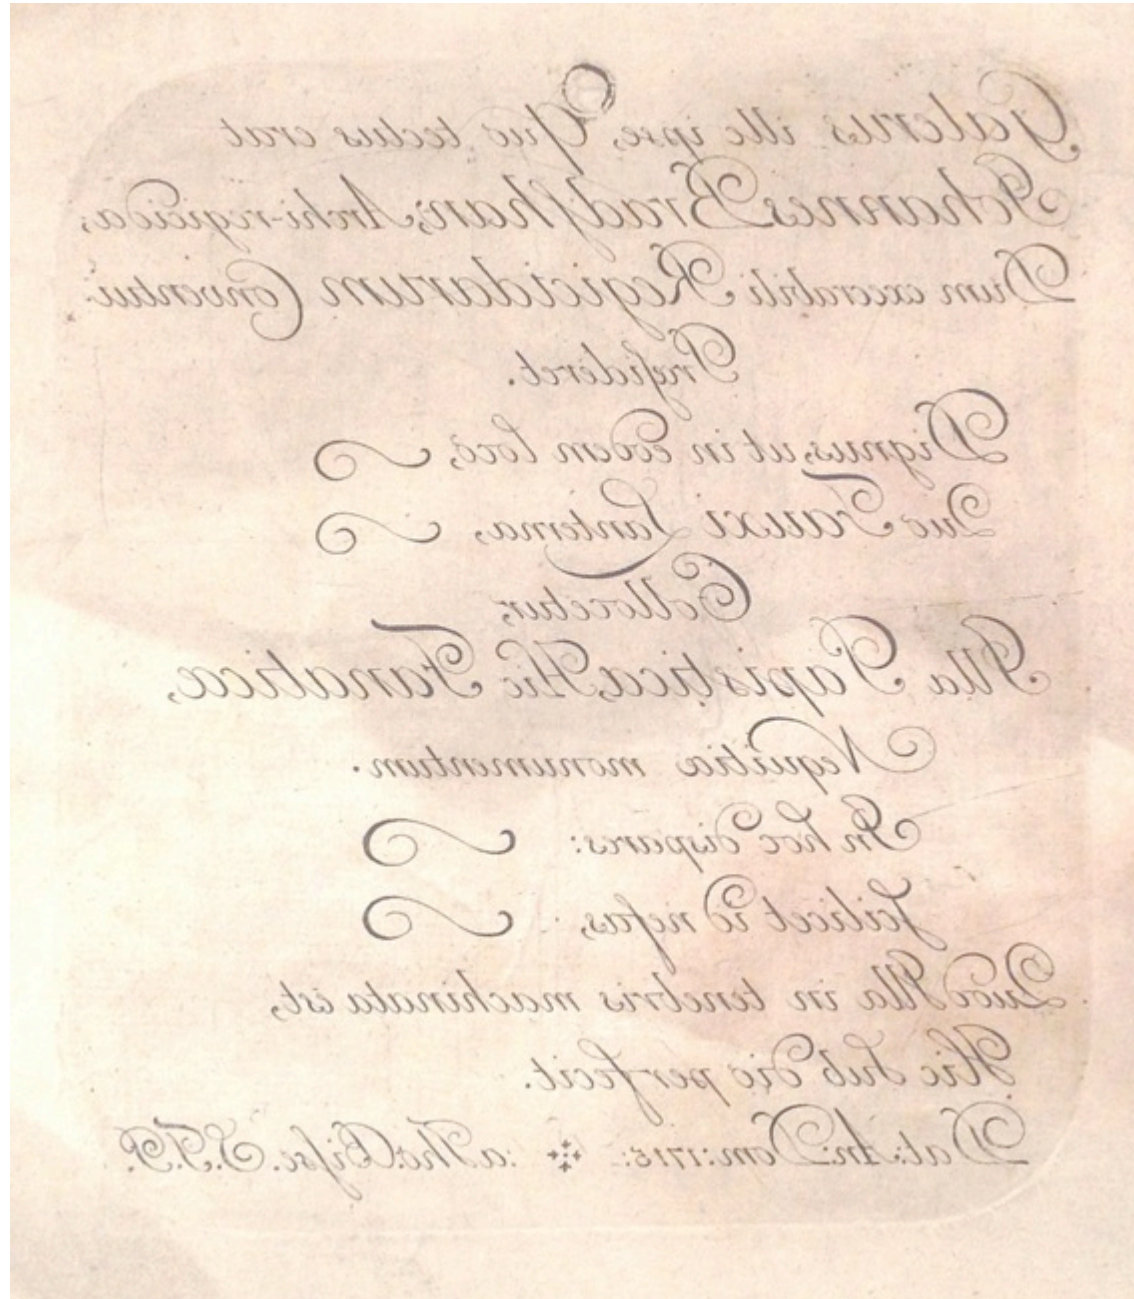 Galerus ille ipse, Quo tectus erat
Iohannes Bradshaw, Archi-regicida,
Dum execrabili Regicidarum Conventui
Præsideret.
Dignus, ut in eodem locô,
Quo Fauxi Lanterna,
Collocetur,
Illa Papisticæ, Hic Fanaticæ,
Nequitiæ monumentum.
In hoc dispares:
Scilicet id nefas,
Quod Illa in tenebris machinata est,
Hic Sub dio perfecit.
Dat: An: Dom: 1715: a Tho: Bisse. S.T.P.